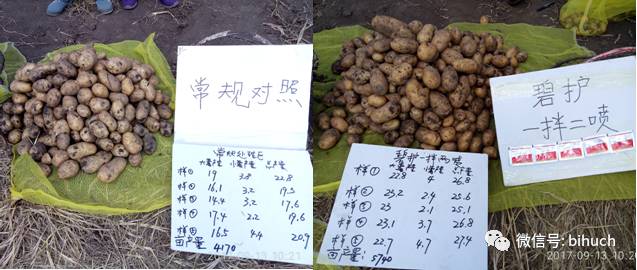 常规对照
常规处理
大薯 小薯 总产量
样① 19 3.8 22.8
样② 16.1 3.2 19.3
样③ 14.4 3.2 17.6
样④ 17.4 2.2 19.6
样⑤ 16.5 4.4 20.9
亩产量 4170
碧护
一拌二喷
碧护一拌两喷
大薯 小薯 总产量
样① 22.8 4 26.8
样② 23.2 2.4 25.6
样③ 23 2.1 25.1
样④ 23.1 3.7 26.8
样⑤ 22.7 4.7 27.4
亩产量: 5740
微信号: bihuch